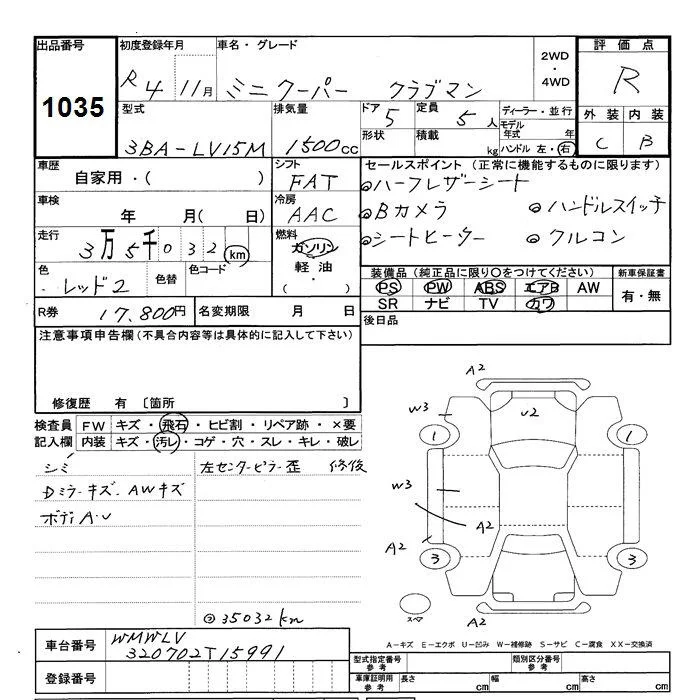 出品番号 初度登録年月 車名・グレード 2WD・4WD 評価点
1035 R4 11月 ミニクーパー クラブマン R
型式 排気量 ドア 定員 ディーラー・並行 外装 内装
3BA-LV15M 1500cc 5 5人 モデル年式 年 C B
形状 積載 kg ハンドル 左・右
車歴 シフト セールスポイント (正常に機能するものに限ります)
自家用・( ) FAT ◎ハーフレザーシート
車検 冷房 ◎Bカメラ ◎ハンドルスイッチ
年 月( 日) AAC ◎シートヒーター ◎クルコン
走行 燃料
3万5千032km ガソリン
軽油
( ・ )
色 色替 色コード 装備品 (純正品に限り○をつけてください) 新車保証書
レッド2 PS PW ABS エアB AW 有・無
SR ナビ TV カワ
R券 17,800円 名変期限 月 日 後日品
注意事項申告欄 (不具合内容等は具体的に記入して下さい)
修復歴 有 〔箇所 〕
検査員 FW キズ・飛石・ヒビ割・リペア跡・×要
記入欄 内装 キズ・汚レ・コゲ・穴・スレ・キレ・破レ
シミ 左センターピラー歪 修復
Dミラーキズ. AWキズ
ボディA・U
②35032km
A2
W3 U2
1 1
W3
A2
A2
3 3
スペア A2
A-キズ E-エクボ U-凹み W-補修跡 S-サビ C-腐食 XX-交換済
車台番号 WMWLV
320702T15991
登録番号
型式指定番号 参考 類別区分番号 参考
車庫証明用 参考 長さ cm 幅 cm 高さ cm